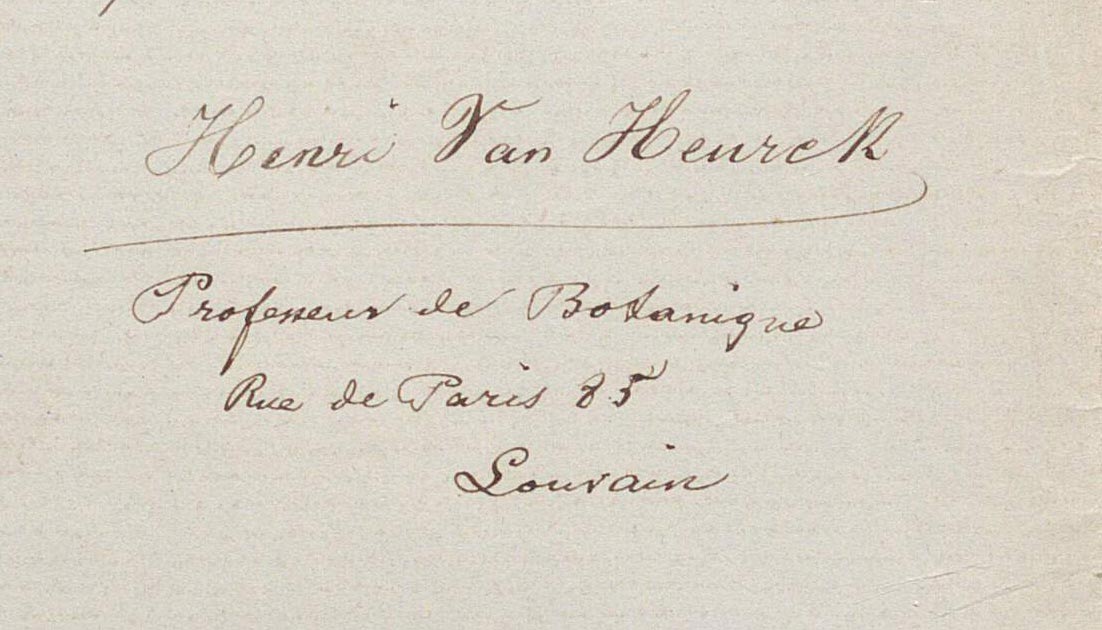 Henri Van Heurck
Professeur de Botanique
Rue de Paris 85
Louvain